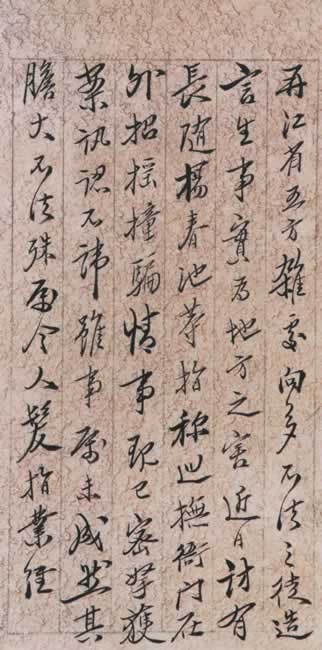 再江省五方雜處向多不法之徒造
言生事實為地方之害近日訪有
長隨楊春池等指稱巡撫衙門在
外招搖撞騙情事現已密拏獲
案訊認不諱雖事屬未成然其
膽大不法殊屬令人髮指業經